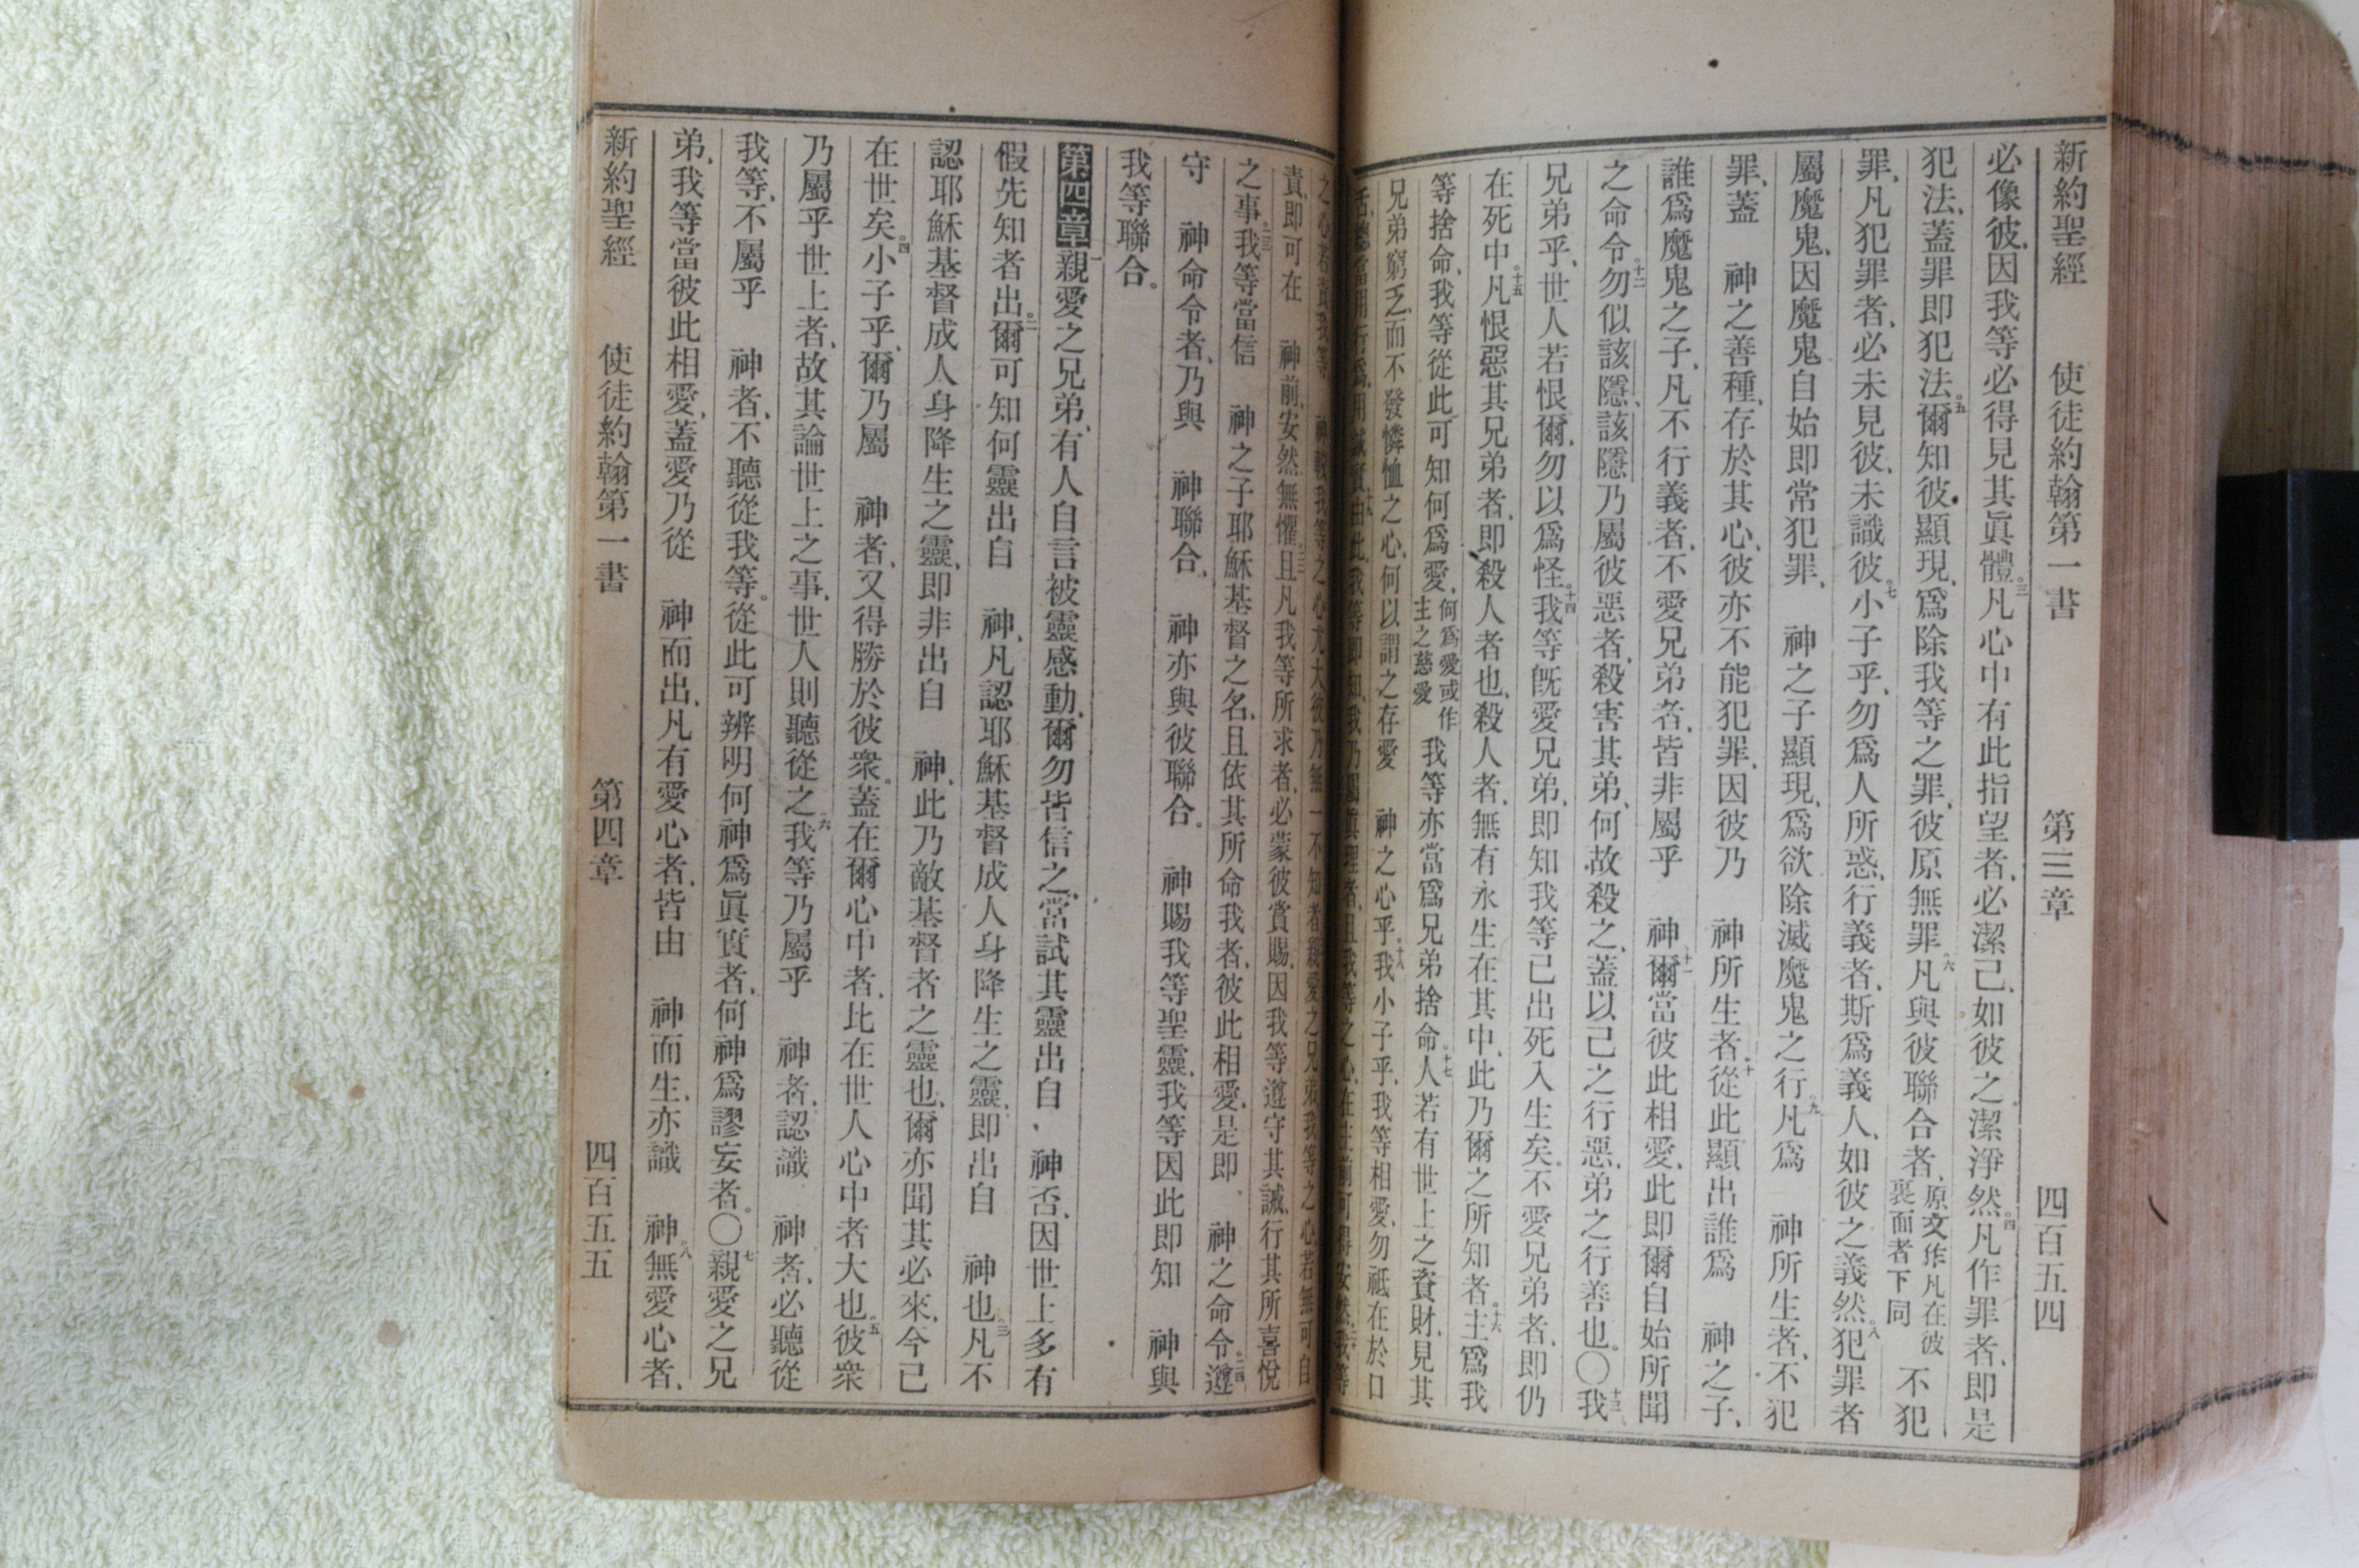 新約聖經 使徒約翰第一書 第三章 四百五四
必像彼、因我等必得見其眞體。三凡心中有此指望者、必潔己、如彼之潔淨然。四凡作罪者、即是
犯法、蓋罪即犯法。五爾知彼顯現、爲除我等之罪、彼原無罪。六凡與彼聯合者、原文作凡在彼裏面者下同 不犯
罪、凡犯罪者、必未見彼、未識彼。七小子乎、勿爲人所惑、行義者、斯爲義人、如彼之義然。八犯罪者
屬魔鬼、因魔鬼自始即常犯罪、 神之子顯現、爲欲除滅魔鬼之行。九凡爲 神所生者、不犯
罪、蓋 神之善種、存於其心、彼亦不能犯罪、因彼乃 神所生者。十從此顯出誰爲 神之子、
誰爲魔鬼之子、凡不行義者、不愛兄弟者、皆非屬乎 神。十一爾當彼此相愛、此即爾自始所聞
之命令。十二勿似該隱、該隱乃屬彼惡者、殺害其弟、何故殺之、蓋以己之行惡、弟之行善也。〇十三我
兄弟乎、世人若恨爾、勿以爲怪。十四我等旣愛兄弟、即知我等已出死入生矣。不愛兄弟者、即仍
在死中。十五凡恨惡其兄弟者、即殺人者也、殺人者、無有永生在其中、此乃爾之所知者。十六主爲我
等捨命、我等從此可知何爲愛、何爲愛或作主之慈愛 我等亦當爲兄弟捨命。十七人若有世上之資財、見其
兄弟窮乏、而不發憐恤之心、何以謂之存愛 神之心乎。十八我小子乎、我等相愛、勿祗在於口
舌、總當用行爲、用誠實。十九由此、我等即知、我乃屬眞理者、且我等之心、在主前可得安然。二十我等
之心若責我等 神較我等之心尤大、彼乃無一不知者、親愛之兄弟、我等之心若無可自
責、即可在 神前、安然無懼。二二且凡我等所求者、必蒙彼賞賜、因我等遵守其誡、行其所喜悅
之事。二三我等當信 神之子耶穌基督之名、且依其所命我者、彼此相愛、是即 神之命令。二四遵
守 神命令者、乃與 神聯合、 神亦與彼聯合。 神賜我等聖靈、我等因此即知 神與
我等聯合。
第四章一親愛之兄弟、有人自言被靈感動、爾勿皆信之、當試其靈出自 神否、因世上多有
假先知者出。二爾可知何靈出自 神、凡認耶穌基督成人身降生之靈、即出自 神也。三凡不
認耶穌基督成人身降生之靈、即非出自 神、此乃敵基督者之靈也、爾亦聞其必來、今已
在世矣。四小子乎、爾乃屬 神者、又得勝於彼衆。蓋在爾心中者、比在世人心中者大也。五彼衆
乃屬乎世上者、故其論世上之事、世人則聽從之。六我等乃屬乎 神者、認識 神者、必聽從
我等、不屬乎 神者、不聽從我等。從此可辨明何神爲眞實者、何神爲謬妄者。〇七親愛之兄
弟、我等當彼此相愛、蓋愛乃從 神而出、凡有愛心者、皆由 神而生、亦識 神。八無愛心者、
新約聖經 使徒約翰第一書 第四章 四百五五